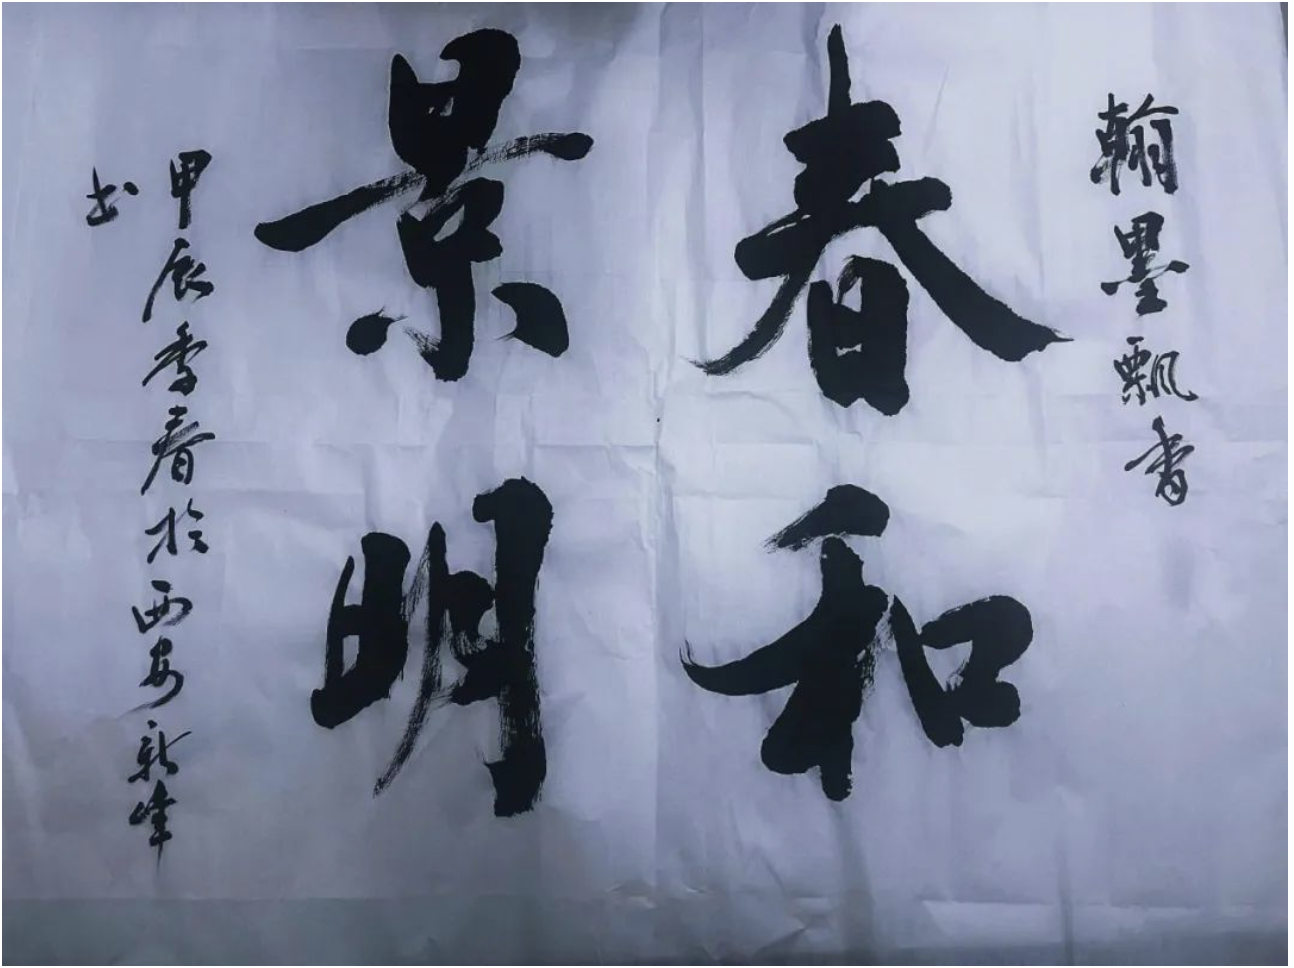 翰墨飘香
春和
景明
甲辰季春於西安新峰
书